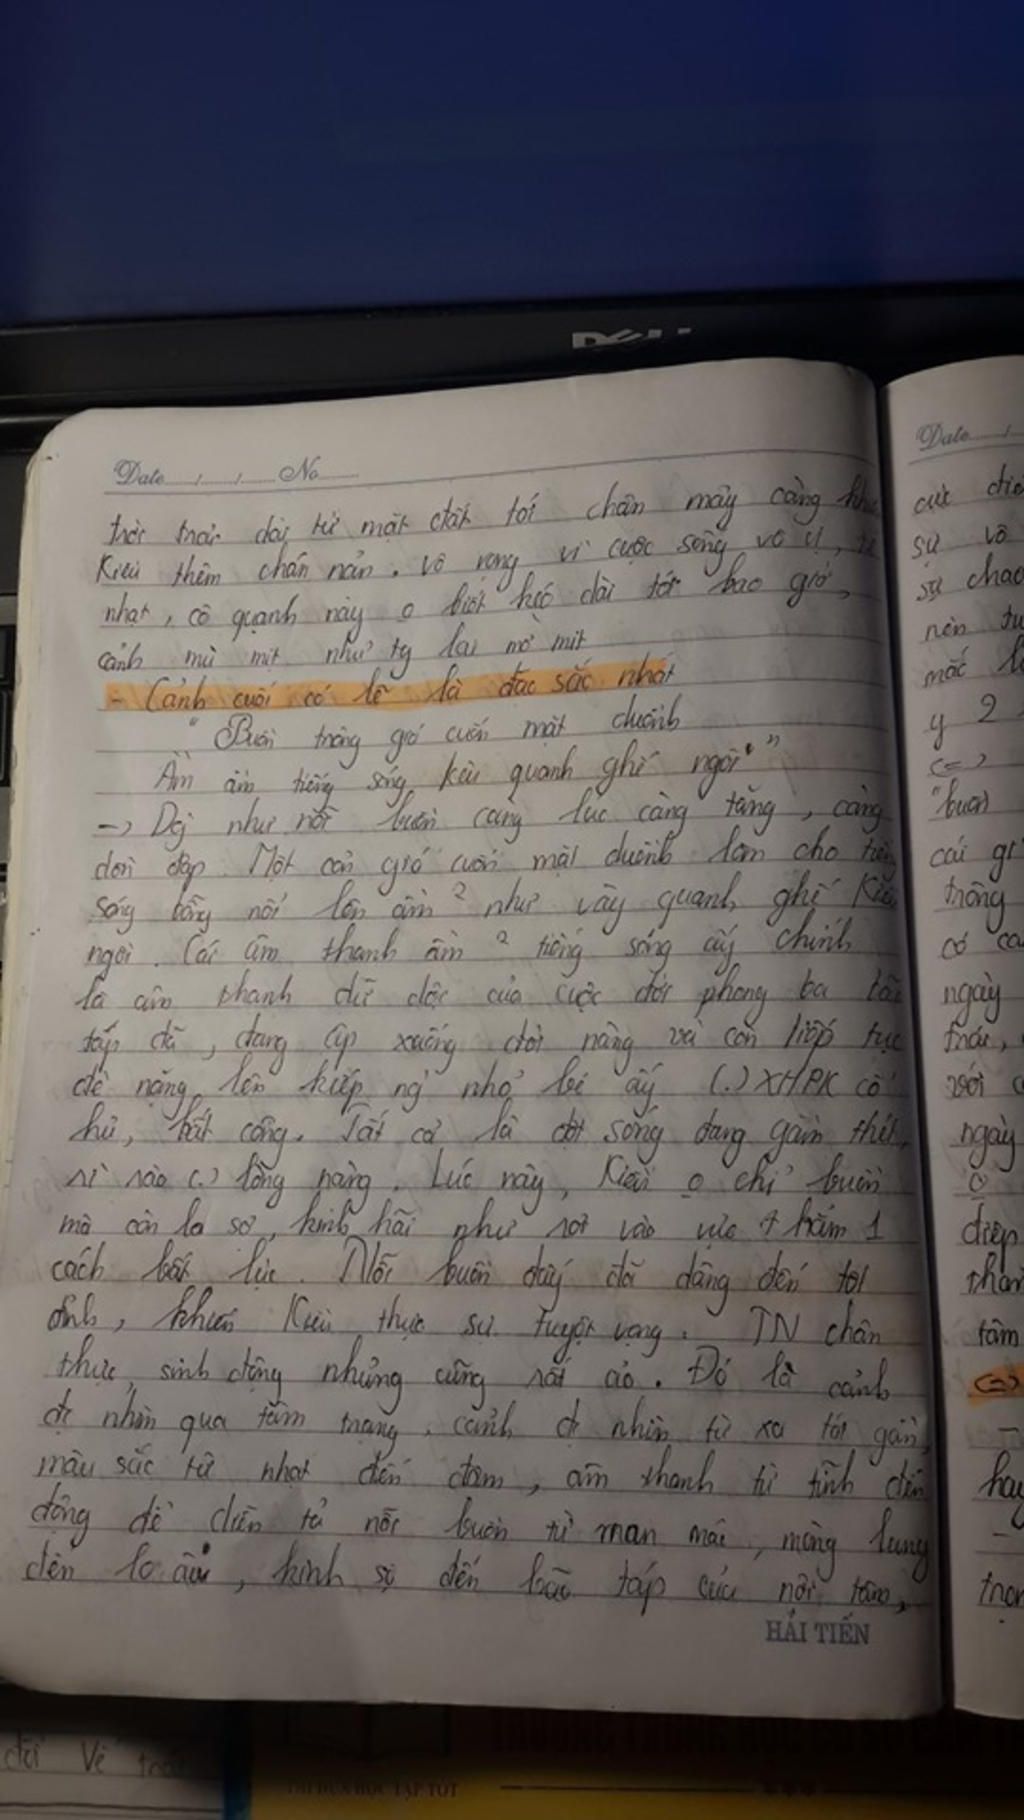 DELL
Date / / No
trời trải dài từ mặt đất tới chân mây càng khiến
Kiều thêm chán nản. vô vọng vì cuộc sống vô vị, tẻ
nhạt, cô quạnh này o biết kéo dài tới bao giờ,
cảnh mù mịt như tg lai mờ mịt
- Cảnh cuối có lẽ là đặc sắc nhất
"Buồn trông gió cuốn mặt duềnh
Ầm ầm tiếng sóng kêu quanh ghế ngồi"
-> Dg như nỗi buồn càng lúc càng tăng, càng
dồn dập. Một cơn gió cuốn mặt duềnh làm cho tiếng
sóng bỗng nổi lên ầm 2 như vây quanh ghế Kiều
ngồi. Cái âm thanh ầm 2 tiếng sóng ấy chính
là âm thanh dữ dội của cuộc đời phong ba bão
táp đã, đang ập xuống đời nàng và còn tiếp tục
đè nặng lên kiếp ng nhỏ bé ấy (.) XHPK cổ
hủ, bất công. Tất cả là đợt sóng đang gầm thét,
rì rào (.) lòng nàng. Lúc này, Kiều o chỉ buồn
mà còn lo sợ, kinh hãi như rơi vào vực thẳm 1
cách bất lực. Nỗi buồn dấy đã dâng đến tột
đỉnh, khiến Kiều thực sự tuyệt vọng. TN chân
thực, sinh động nhưng cũng rất ảo. Đó là cảnh
đc nhìn qua tâm trạng, cảnh đc nhìn từ xa tới gần,
màu sắc từ nhạt đến đậm, âm thanh từ tĩnh đến
động để diễn tả nỗi buồn từ man mác, mông lung
đến lo âu, kinh sợ đến bão táp của nội tâm,
HẢI TIẾN
Date /
cực
sự vô
sự
nên
mắc
y 2
(=)
"buồn
cái
trông
có
ngày
với
ngày
điệp
tâm
(=)
-
hay
-
đổi Vẽ
THI ĐUA HỌC TẬP TỐT